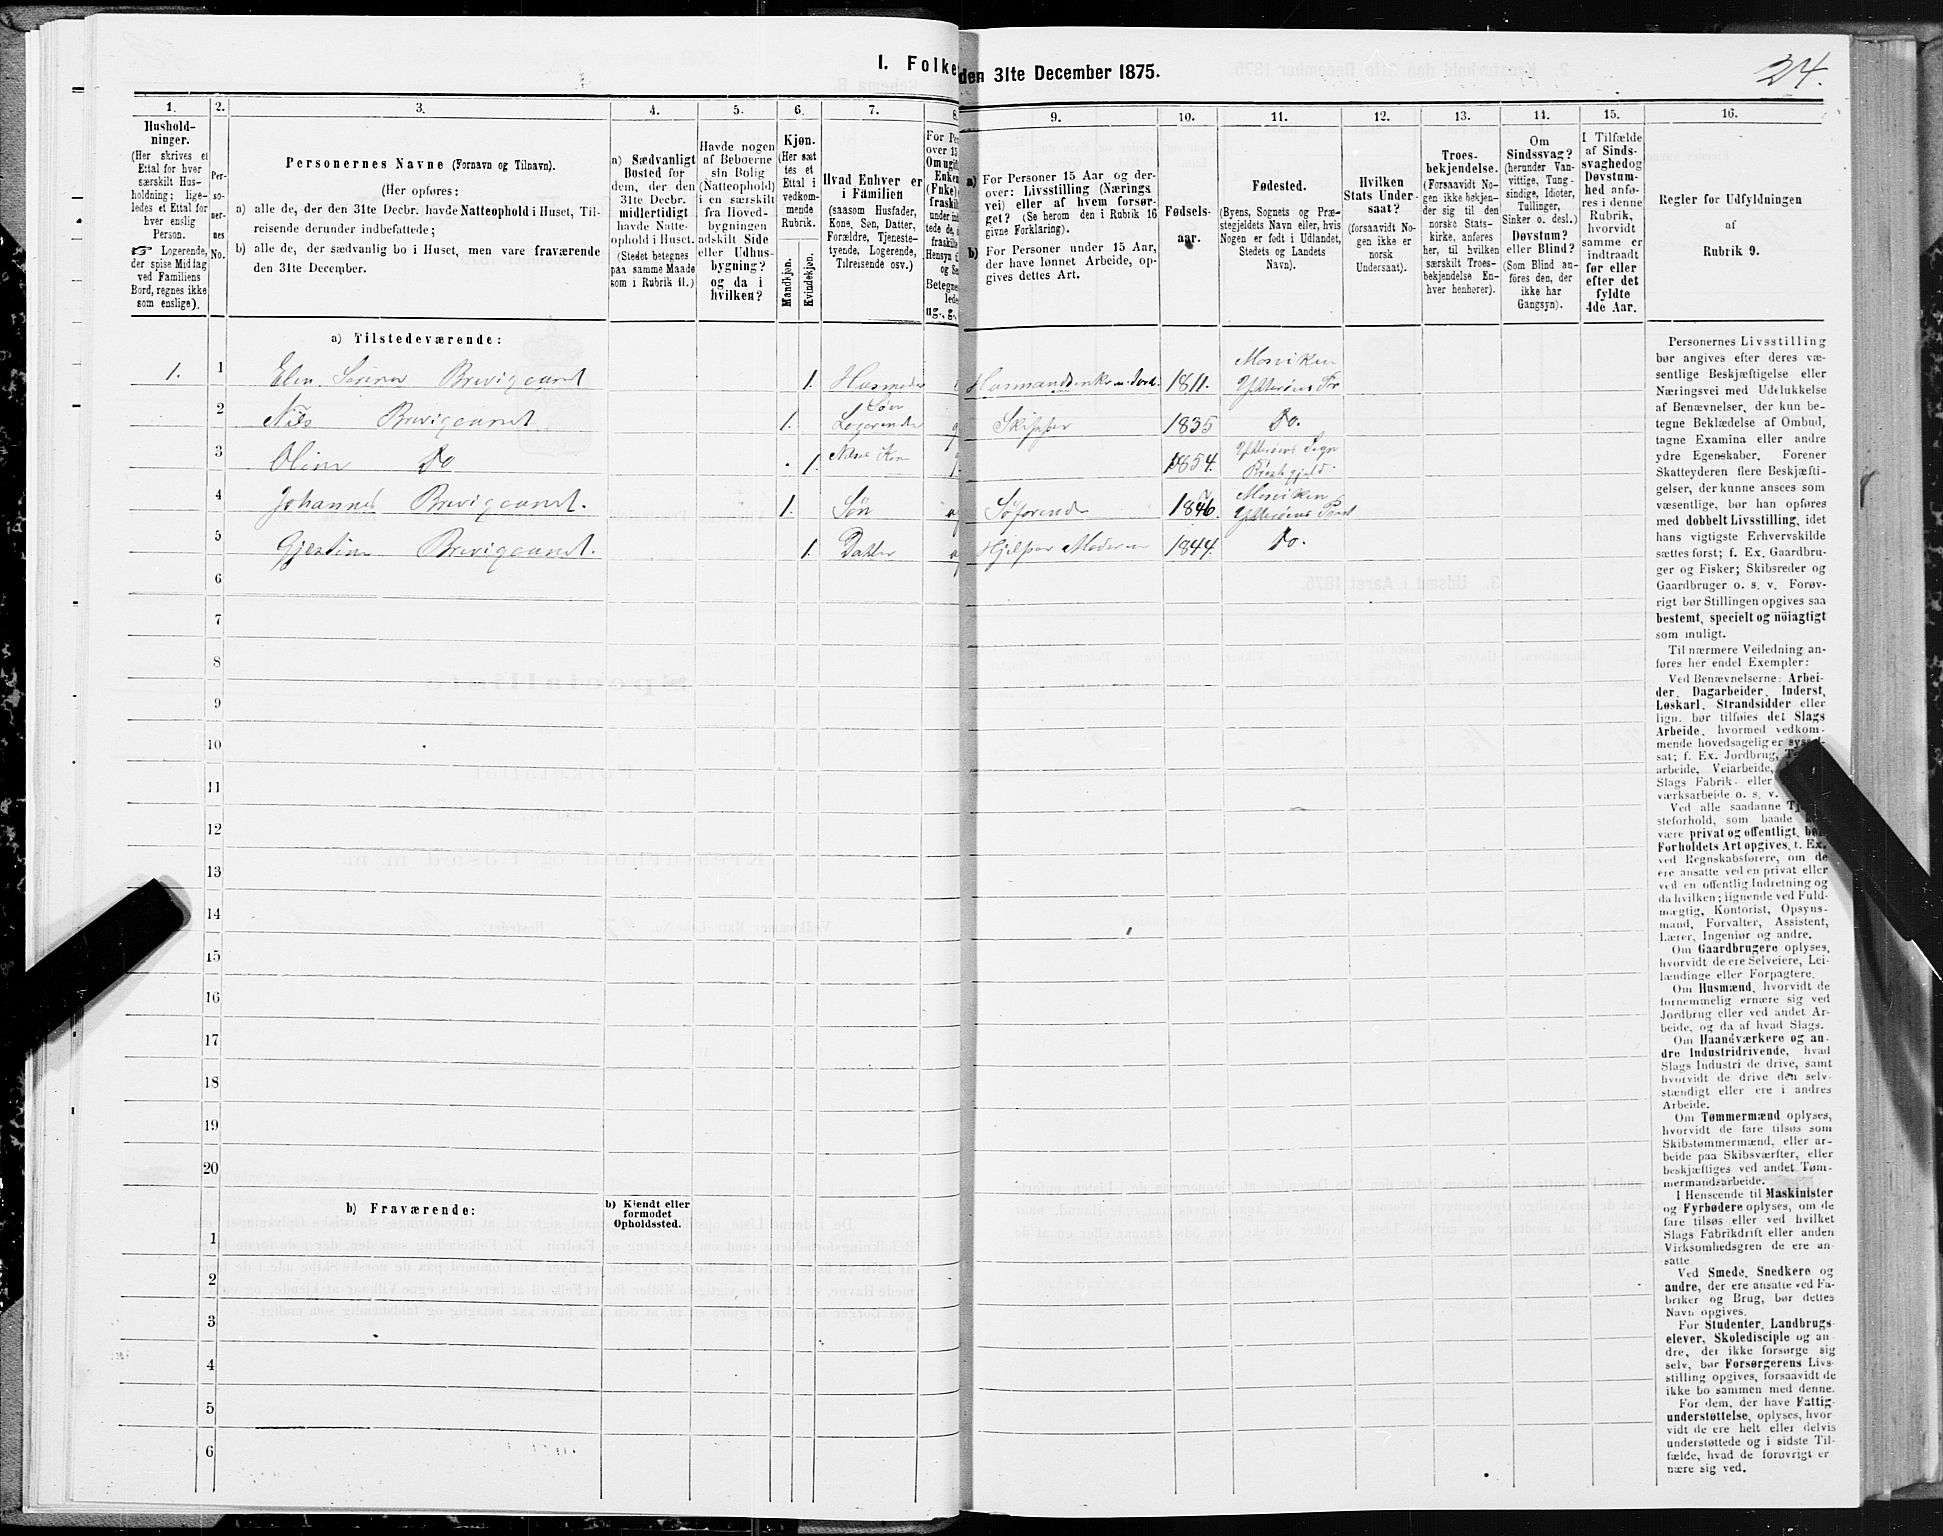 24.
I. Folke
den 31te December 1875.
1. 2. 3. 4. 5. 6. 7. 8. 9. 10. 11. 12. 13. 14. 15. 16.
Hushold-
ninger.
(Her skrives et
Ettal for hver
særskilt Hus-
holdning; lige-
ledes et Ettal for
hver enslig
Person.
☞ Logerende,
der spise Middag
ved Familiens
Bord, regnes ikke
som enslige).
Per-
so-
ner-
nes
No.
Personernes Navne (Fornavn og Tilnavn).
(Her opføres:
a) alle de, der den 31te Decbr. havde Natteophold i Huset, Til-
reisende derunder indbefattede;
b) alle de, der sædvanlig bo i Huset, men vare fraværende
den 31te December.
a) Sædvanligt
Bosted for
dem, der den
31te Decbr.
midlertidigt
havde Natte-
ophold i Huset.
(Stedet betegnes
paa samme Maade
som i Rubrik 11.)
Havde nogen
af Beboerne
sin Bolig
(Natteophold)
i en særskilt
fra Hoved-
bygningen
adskilt Side
eller Udhus-
bygning?
og da i
hvilken?
Kjøn.
(Her sæt
tes et
Ettal i
vedkom-
mende
Rubrik.
Mandkjøn.
Kvindekjøn.
Hvad Enhver er
i Familien
(saasom Husfader,
Kone, Søn, Datter,
Forældre, Tjeneste-
tyende, Logerende,
Tilreisende osv.)
For Pe
over 15
Om ugif
Enken
(Fnke)
fraskil
under ind
tede de,
fraskilte
Hensyn t
og Se
Betegne
lede
ug., g.,
a) For Personer 15 Aar og der-
over: Livsstilling (Nærings
vei) eller af hvem forsør-
get? (Se herom den i Rubrik 16
givne Forklaring).
b) For Personer under 15 Aar,
der have lønnet Arbeide, op-
gives dettes Art.
Fødsels-
aar.
Fødested.
(Byens, Sognets og Præ-
stegjeldets Navn eller, hvis
Nogen er født i Udlandet,
Stedets og Landets
Navn).
Hvilken
Stats Under-
saat?
(forsaavidt No-
gen ikke er
norsk
Undersaat).
Troes-
bekjendelse.
(Forsaavidt No-
gen ikke bekjen-
der sig til den
norske Stats-
kirke, anføres
her, til hvilken
særskilt Troes-
bekjendelse En-
hver henhører).
Om
Sindssvag?
(herunder Van-
vittige, Tung-
sindige, Idioter,
Tullinger,
Sinker o. desl.)
Døvstum?
eller Blind?
(Som Blind an-
føres den, der
ikke har
Gangsyn).
I Tilfælde
af Sinds-
svaghedog
Døvstum-
hed anfø-
res i denne
Rubrik,
hvorvidt
samme er
indtraadt
før eller
efter det
fyldte
4de Aar.
Regler for Udfyldningen
af
Rubrik 9.
a) Tilstedeværende:
1. 1 Elen Brevigaunet 1. 1811. Mosviken
2 Søn
Nils Brevigaunet 1. Logerende Skipper 1835 Do.
3 Oline Do 1. Nils's Kone 1854. Ytterøens Sogn
4 Johannes Brevigaunet. 1. Søn Søfarende 1846. Mosviken
5 Brevigaunet. 1. Datter Hjelper Moderen 1844. Do.
6
7
8
9
10
11
12
13
14
15
16
17
18
19
20
b) Fraværende: b) Kjendt eller
formodet
Opholdssted.
1
2
3
4
5
6
Personernes Livsstilling
bør angives efter deres væ-
sentlige Beskjæftigelse eller
Næringsvei med Udelukkelse
af Benævnelser, der kun be-
tegne Beklædelse af Ombud,
tagne Examina eller andre
ydre Egenskaber. Forener
Skatteyderen flere Beskjæfti-
gelser, der kunne ansees som
væsentlige, bør han opføres
med dobbelt Livsstilling, idet
hans vigtigste Erhvervskilde
sættes først; f. Ex. Gaardbru-
ger og Fisker; Skibsreder og
Gaardbruger o. s. v. Forøv-
rigt bør Stillingen opgives saa
bestemt, specielt og nöiagtigt
som muligt.
Til nærmere Veiledning an-
føres her endel Exempler:
Ved Benævnelserne: Arbei-
der, Dagarbeider, Inderst,
Løskarl, Strandsidder eller
lign. bør tilføies det Slags
Arbeide, hvormed vedkom-
mende hovedsagelig er
sat; f. Ex. Jordbrug,
arbeide, Veiarbeide,
Slags Fabrik- eller
værksarbeide o. s. v.
Ved alle saadanne
steforhold, som baade
være privat og offentligt, bør
Forholdets Art opgives, t. Ex.
ved Regnskabsførere, om de
ere ansatte ved en privat eller
ved en offentlig Indretning og
da hvilken; lignende ved Fuld-
mægtig, Kontorist, Opsyns-
mand, Forvalter, Assistent,
Lærer, Ingeniør og andre.
Om Gaardbrugere oplyses,
hvorvidt de ere Selveiere, Lei-
lændinge eller Forpagtere.
Om Husmænd, hvorvidt de
fornemmelig ernære sig ved
Jordbrug eller ved andet Ar-
beide, og da af hvad Slags.
Om Haandværkere og an-
dre Industridrivende, hvad
Slags Industri de drive, samt
hvorvidt de drive den selv-
stændigt eller ere i andres
Arbeide.
Om Tømmermænd oplyses,
hvorvidt de fare tilsøs som
Skibstømmermænd, eller ar-
beide paa Skibsværfter, eller
beskjæftiges ved andet Tøm-
mermandsarbeide.
I Henseende til Maskinister
og Fyrbødere oplyses, om de
fare tilsøs eller ved hvilket
Slags Fabrikdrift eller anden
Virksomhedsgren de ere an-
satte.
Ved Smede, Snedkere og
andre, der ere ansatte ved Fa-
briker og Brug, bør dettes
Navn opgives.
For Studenter, Landbrugs-
elever, Skoledisciple og an-
dre, der ikke forsørge sig
selv, bør Forsørgerens Livs-
stilling opgives, forsaavidt de
ikke bo sammen med denne.
For dem, der have Fattig-
understøttelse, oplyses, hvor
vidt de ere helt eller delvis
understøttede og i sidste Til-
fælde, hvad de forøvrigt er
nære sig ved.